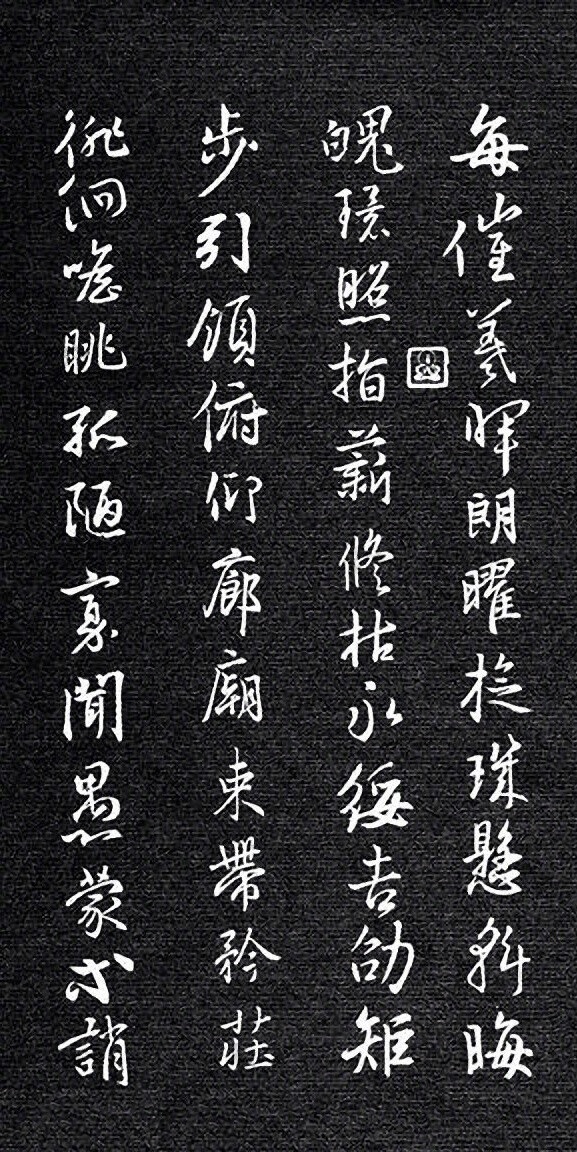 每催羲暉朗曜旋珠懸斡晦
魄環照指薪修祜永綏吉劭矩
步引領俯仰廊廟束帶矜莊
徘徊瞻眺孤陋寡聞愚蒙等誚